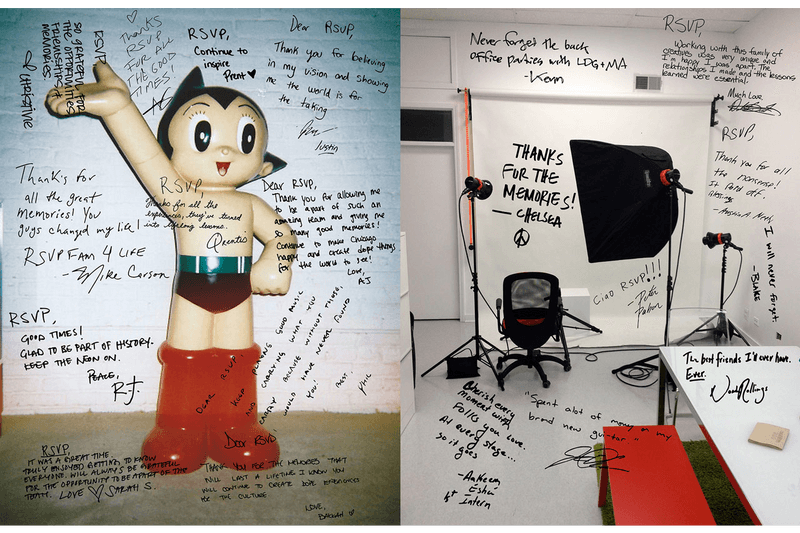 SO GRATEFUL FOR
THE OPPORTUNITIES
THROUGHOUT
MEMORIES
RSVP
Thanks
RSVP
FOR ALL
THE GOOD
TIMES!
RSVP,
Continue to
inspire
Prent ♥
Dear RSVP,
Thank you for believing
in my vision and showing
me the world is for
the taking
Justin
Thanks for
all the great
memories! You
guys changed my life!
RSVP FAM 4 LIFE
-Mike Carson
RSVP,
Thanks for all the
experiences, they've turned
into lifelong lessons.
Quentin
Dear RSVP,
Thank you for allowing me
to be apart of such an
amazing team and giving me
so many good memories!
Continue to make Chicago
happy and create dope things
for the world to see!
Love,
AJ
RSVP,
GOOD TIMES!
GLAD TO BE PART OF HISTORY.
KEEP THE NEON ON.
PEACE,
RJ
DEAR RSVP,
KEEP PLAYING GOOD MUSIC
AND CARRYING WHAT YOU
CARRY BECAUSE WITHOUT THINGS,
WOULD HAVE NEVER FOUND
YOU!
BEST,
PHIL
RSVP,
IT WAS A GREAT TIME.
TRULY ENJOYED GETTING TO KNOW
EVERYONE. WILL ALWAYS BE GRATEFUL
FOR THE OPPORTUNITY TO BE APART OF THE
TEAM. LOVE ♡ SARAH S.
Dear RSVP
THANK YOU FOR THE MEMORIES THAT
WILL LAST A LIFETIME I KNOW YOU
WILL CONTINUE TO CREATE LOVE EXPERIENCES
FOR THE CULTURE
LOVE,
Never forget the back
office parties with LDG+MA
-Kevin
RSVP,
Working with this family of
creatives was very unique and
I'm happy I was apart. The
relationships I made and the lessons
learned were essential.
Much Love
THANKS
FOR THE
MEMORIES!
— CHELSEA
RSVP,
Thank you for all
the nonsense!
It paid off.
I will never forget.
-BLAKE
CIAO RSVP!!!
-Peter
The best friends I'll ever have.
Ever.
Cherish every
moment with
Folks you love...
At every stage...
So it
goes
-Ankeem
Eshu
1st Intern
"Spent alot of money on my
brand new guitar"